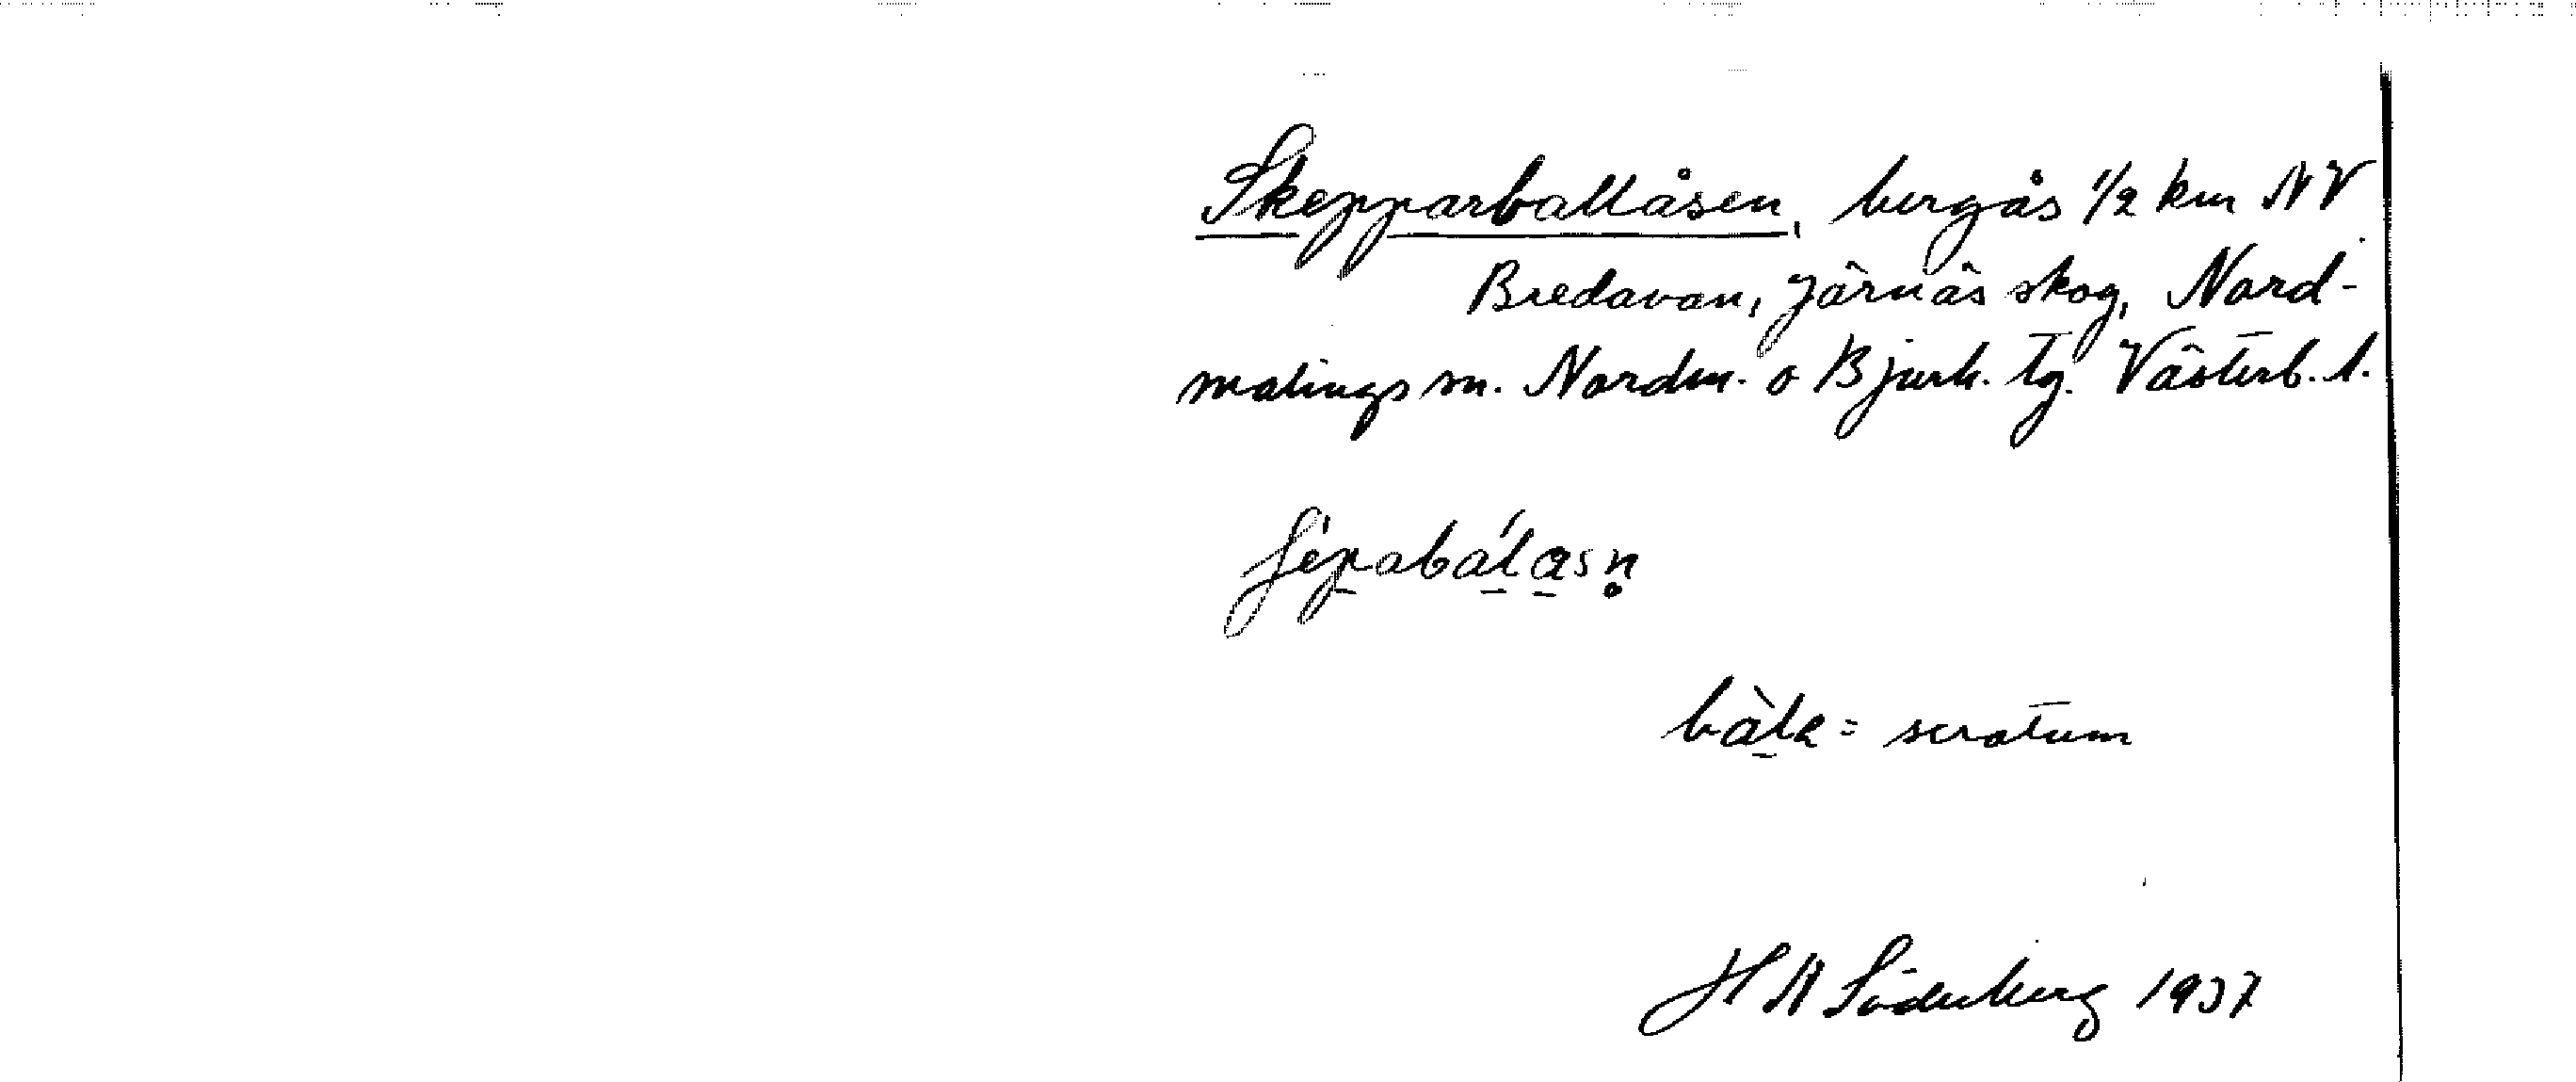 Skepparballåsen, bergås 1/2 km NV
Bredavan, Järnäs skog, Nord-
malings sn. Nordm. o Bjurh. tg. Västerb. l.
ʃépabálasn̥
bàla = scrotum
H A Söderberg 1937